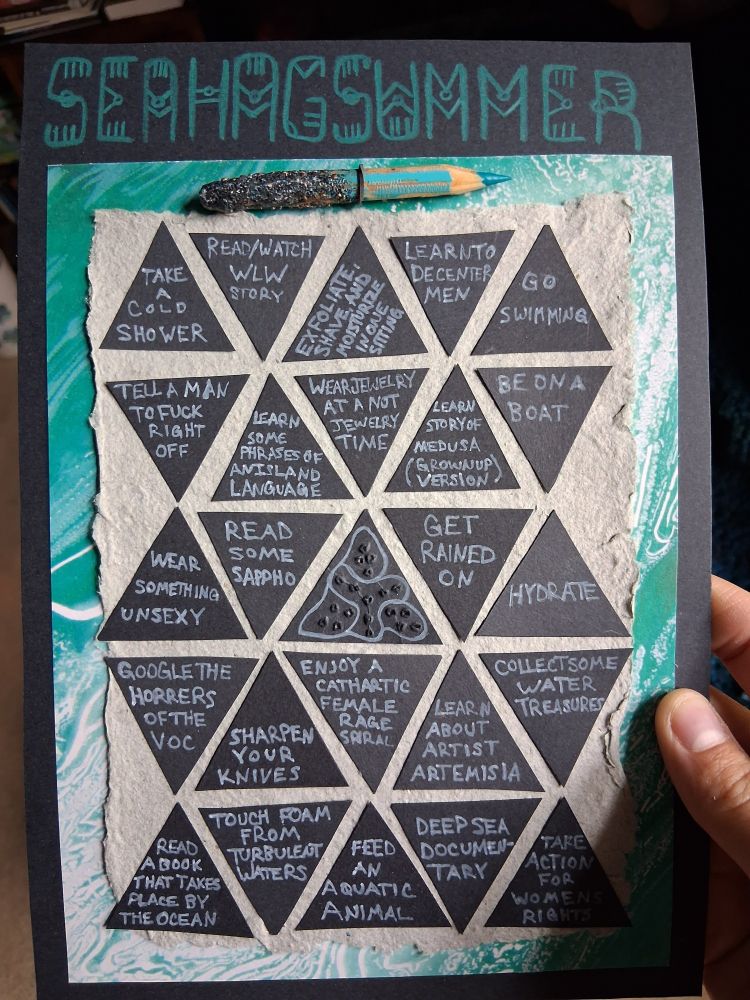 SEAHAGSUMMER
TAKE
A
COLD
SHOWER
READ/WATCH
WLW
STORY
EXFOLIATE,
SHAVE, AND
MOISTURIZE
IN ONE
SITTING
LEARN TO
DECENTER
MEN
GO
SWIMMING
TELL A MAN
TO FUCK
RIGHT
OFF
LEARN
SOME
PHRASES OF
AN ISLAND
LANGUAGE
WEAR JEWELRY
AT A NOT
JEWELRY
TIME
LEARN
STORY OF
MEDUSA
(GROWNUP)
VERSION)
BE ON A
BOAT
WEAR
SOMETHING
UNSEXY
READ
SOME
SAPPHO
GET
RAINED
ON
HYDRATE
GOOGLE THE
HORRERS
OF THE
VOC
SHARPEN
YOUR
KNIVES
ENJOY A
CATHARTIC
FEMALE
RAGE
SPIRAL
LEARN
ABOUT
ARTIST
ARTEMISIA
COLLECT SOME
WATER
TREASURES
READ
A BOOK
THAT TAKES
PLACE BY
THE OCEAN
TOUCH FOAM
FROM
TURBULENT
WATERS
FEED
AN
AQUATIC
ANIMAL
DEEP SEA
DOCUMEN-
TARY
TAKE
ACTION
FOR
WOMENS
RIGHTS